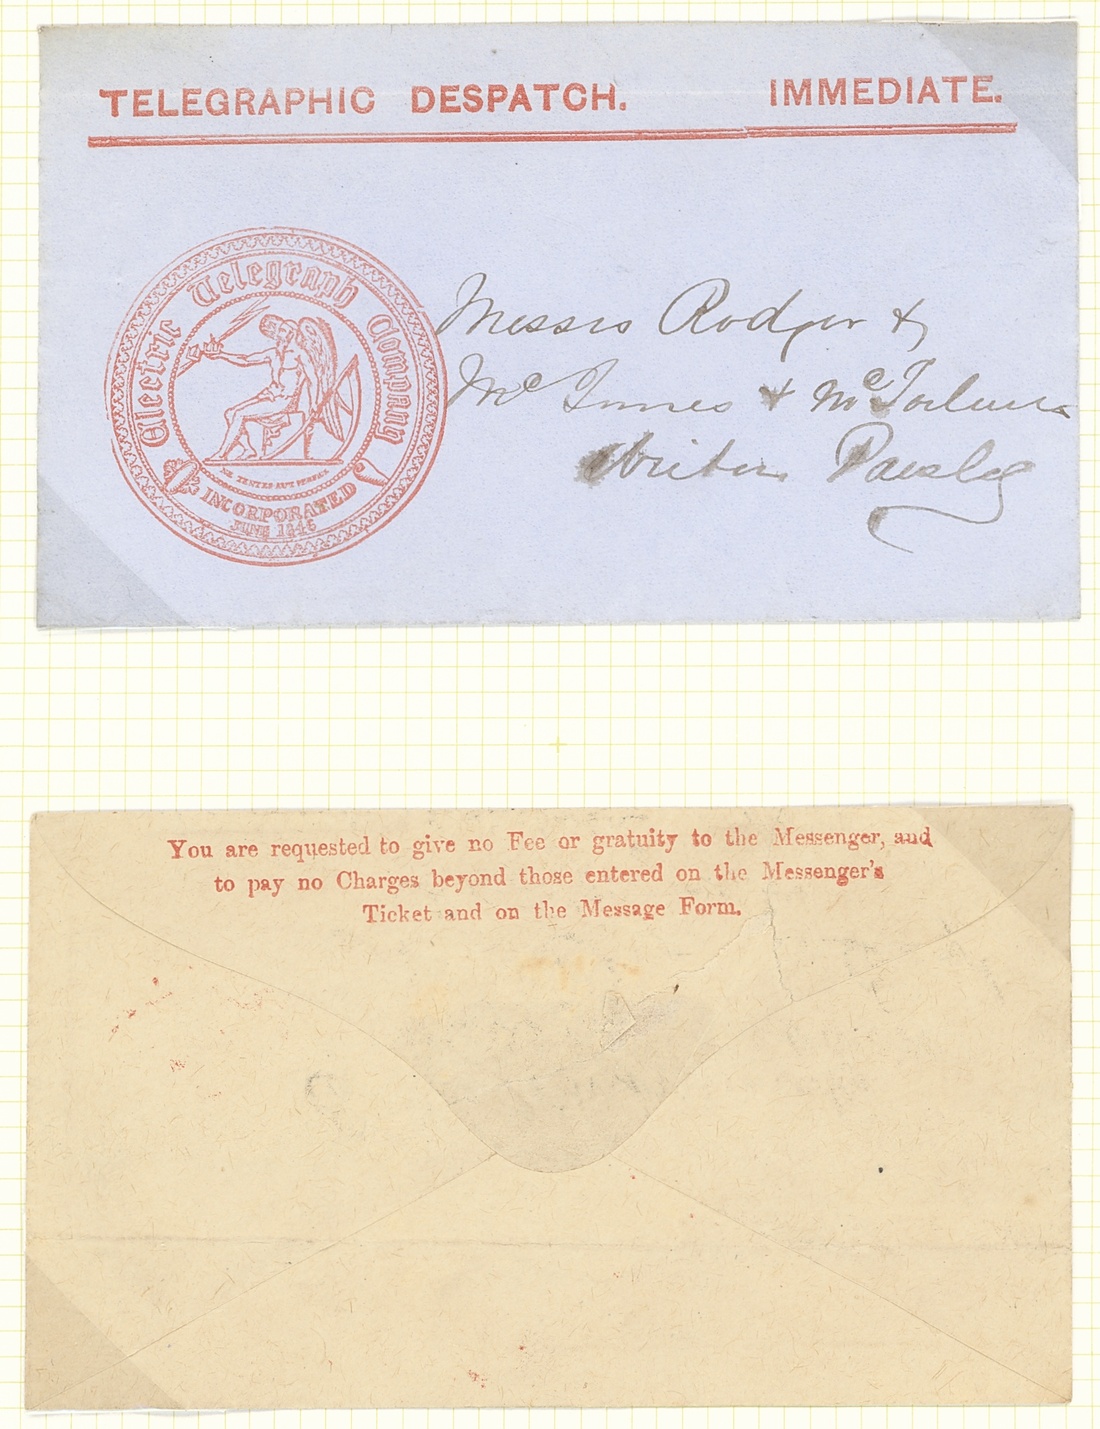 TELEGRAPHIC DESPATCH. IMMEDIATE.
Electric Telegraph Company
INCORPORATED
JUNE 1846
Messrs Rodger &
Mc Innes &
Writers Paisley
You are requested to give no Fee or gratuity to the Messenger, and
to pay no Charges beyond those entered on the Messenger's
Ticket and on the Message Form.